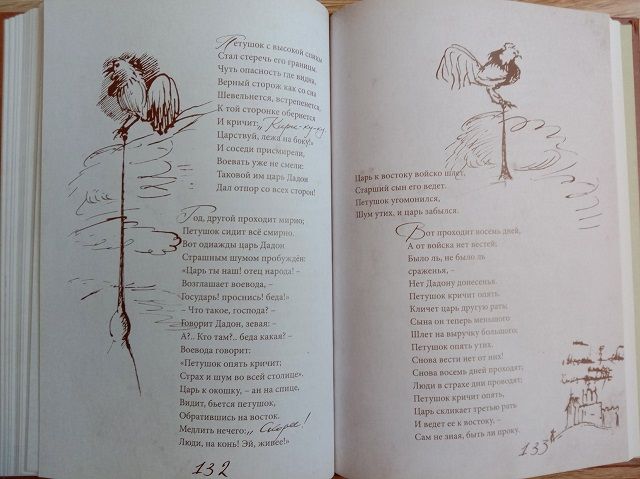 Петушок с высокой спицы
Стал стеречь его границы.
Чуть опасность где видна,
Верный сторож как со сна
Шевельнется, встрепенется,
К той сторонке обернется
И кричит: „Кири-ку-ку.
Царствуй, лежа на боку!»
И соседи присмирели,
Воевать уже не смели:
Таковой им царь Дадон
Дал отпор со всех сторон!
Год, другой проходит мирно;
Петушок сидит всё смирно.
Вот однажды царь Дадон
Страшным шумом пробуждён:
«Царь ты наш! отец народа! –
Возглашает воевода, –
Государь! проснись! беда!»
– Что такое, господа? –
Говорит Дадон, зевая: –
А?.. Кто там?.. беда какая? –
Воевода говорит:
«Петушок опять кричит;
Страх и шум во всей столице».
Царь к окошку, – ан на спице,
Видит, бьется петушок,
Обратившись на восток.
Медлить нечего: „Скорее!
Люди, на конь! Эй, живее!»
132
Царь к востоку войско шлет,
Старший сын его ведет.
Петушок угомонился,
Шум утих, и царь забылся.
Вот проходит восемь дней,
А от войска нет вестей;
Было ль, не было ль
сраженья, –
Нет Дадону донесенья.
Петушок кричит опять.
Кличет царь другую рать;
Сына он теперь меньшого
Шлет на выручку большого;
Петушок опять утих.
Снова вести нет от них!
Снова восемь дней проходят;
Люди в страхе дни проводят;
Петушок кричит опять,
Царь скликает третью рать
И ведет ее к востоку, –
Сам не зная, быть ли проку.
133